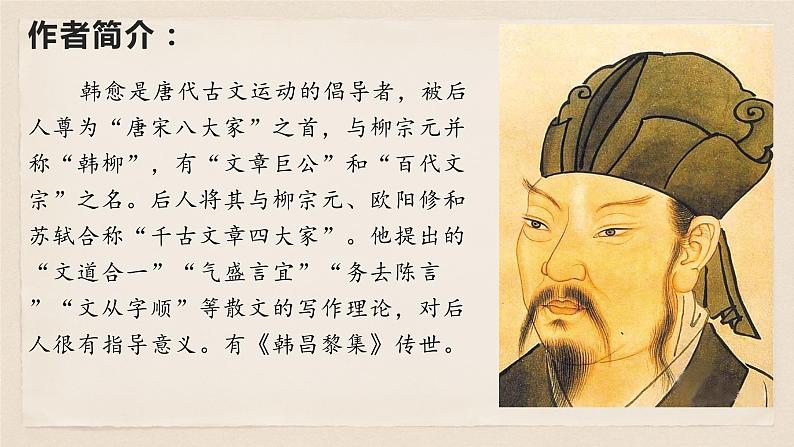 作者简介：
韩愈是唐代古文运动的倡导者，被后
人尊为“唐宋八大家”之首，与柳宗元并
称“韩柳”，有“文章巨公”和“百代文
宗”之名。后人将其与柳宗元、欧阳修和
苏轼合称“千古文章四大家”。他提出的
“文道合一”“气盛言宜”“务去陈言
”“文从字顺”等散文的写作理论，对后
人很有指导意义。有《韩昌黎集》传世。